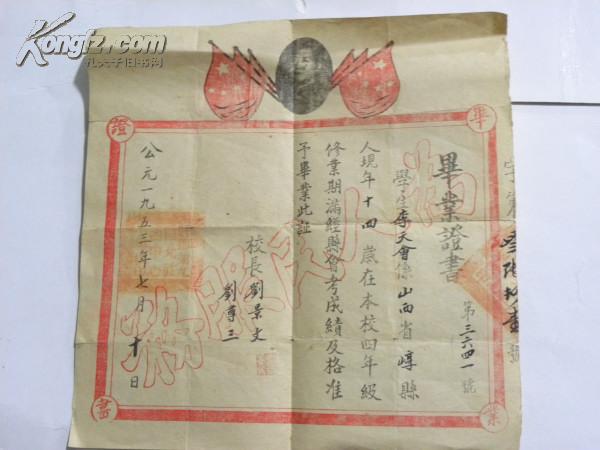 Kongfz.com
孔夫子旧书网
畢業證書
畢業證書
第三六四一號
學生李天會係山西省崞縣
人現年十四歲在本校四年級
修業期滿經縣會考成績及格准
予畢業此証
校長劉景文
劉尊三
公元一九五三年七月十日
為人民服務